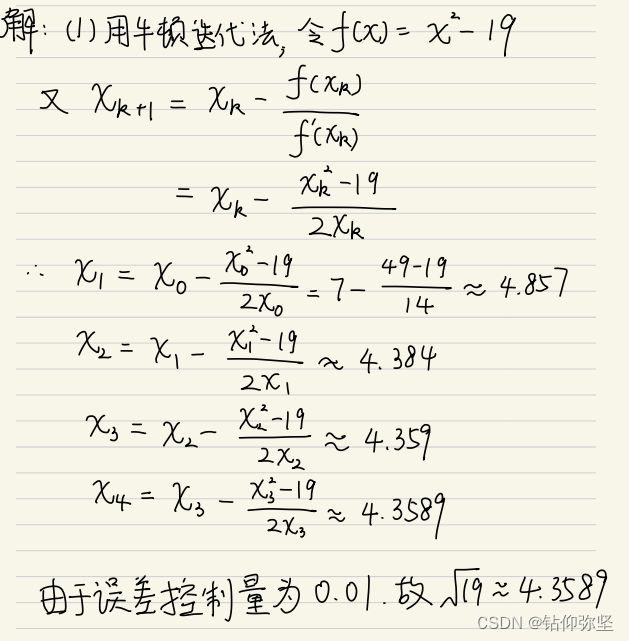 解: (1) 用牛顿迭代法, 令 f(x) = x² - 19
又 x_{k+1} = x_k - f(x_k) / f'(x_k)
= x_k - (x_k² - 19) / 2x_k
∴ x₁ = x₀ - (x₀² - 19) / 2x₀ = 7 - (49 - 19) / 14 ≈ 4.857
x₂ = x₁ - (x₁² - 19) / 2x₁ ≈ 4.384
x₃ = x₂ - (x₂² - 19) / 2x₂ ≈ 4.359
x₄ = x₃ - (x₃² - 19) / 2x₃ ≈ 4.3589
由于误差控制量为 0.01. 故 √19 ≈ 4.3589
CSDN @钻仰弥坚